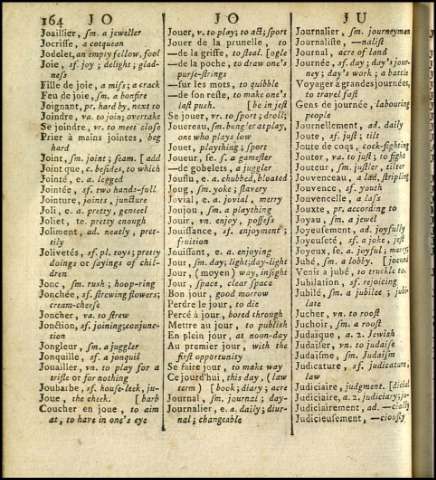 164 JO JO JU
Joaillier, sm. a jeweller
Jocrisse, a cotquean
Jodelet, an empty fellow, fool
Joie, sf. joy ; delight ; glad-
ness
Fille de joie, a miss; a crack
Feu de joie, sm. a bonfire
Joignant, pr. hard by, next to
Joindre, va. to join; overtake
Se joindre, vr. to meet close
Prier à mains jointes, beg
hard
Joint, sm. joint ; seam. [add
Joint que, c. besides, to which
Jointé, e. a. legged
Jointée, sf. two hands-full
Jointure, joints, juncture
Joli, e. a. pretty, genteel
Joliet, te. pretty enough
Joliment, ad. neatly, pret-
tily
Jolivetés, sf. pl. toys; pretty
doings or sayings of chil-
dren
Jonc, sm. rush ; hoop-ring
Jonchée, sf. strewing flowers;
cream-cheese
Joncher, va. to strew
Jonction, sf. joining; conjunc-
tion
Jongleur, sm. a juggler
Jonquille, sf. a jonquil
Jouailler, vn. to play for a
trifle or for nothing
Joubarbe, sf. house-leek, ju-
Joue, the cheek. [barb
Coucher en joue, to aim
at, to have in one's eye
Jouer, v. to play; to act; sport
Jouer de la prunelle, to
—de la griffe, to steal. [ogle
—de la poche, to draw one's
purse-strings
—sur les mots, to quibble
—de son reste, to make one's
last push. [be in jest
Se jouer, vr. to sport ; droll;
Jouereau, sm. bungler at play,
one who plays low
Jouet, plaything ; sport
Joueur, se. f. a gamester
—de gobelets, a juggler
Jouflu, e. a. chubbed, bloated
Joug, sm. yoke ; slavery
Jovial, e. a. jovial, merry
Joujou, sm. a plaything
Jouir, vn. enjoy, possess
Jouissance, sf. enjoyment ;
fruition
Jouissant, e. a. enjoying
Jour, sm. day; light; day-light
Jour, (moyen) way, insight
Jour, space, clear space
Bon jour, good morrow
Perdre le jour, to die
Percé à jour, bored through
Mettre au jour, to publish
En plein jour, at noon-day
Au premier jour, with the
first opportunity
Se faire jour, to make way
Ce jourd'hui, this day, (law
term) [book; diary; acre
Journal, sm. journal ; day-
Journalier, e. a. daily; diur-
nal ; changeable
Journalier, sm. journeyman
Journaliste, —nalist
Journal, acre of land
Journée, sf. day ; day's jour-
ney ; day's work ; a battle
Voyager à grandes journées,
to travel fast
Gens de journée, labouring
people
Journellement, ad. daily
Joute, sf. just ; tilt
Joute de coqs, cock-fighting
Jouter, va. to just ; to fight
Jouteur, sm. justler, tilter
Jouvenceau, a lad, stripling
Jouvence, sf. youth
Jouvencelle, a lass
Jouxte, pr. according to
Joyau, sm. a jewel
Joyeusement, ad. joyfully
Joyeuseté, sf. a joke, jest
Joyeux, se. a. joyful; merry,
Jubé, sm. a lobby. [jocund
Venir à jubé, to truckle to
Jubilation, sf. rejoicing
Jubilé, sm. a jubilee ; jubi-
late
Jucher, vn. to roost
Juchoir, sm. a roost
Judaïque, a. 2. Jewish
Judaïser, vn. to judaise
Judaïsme, sm. Judaism
Judicature, sf. judicature,
law
Judiciaire, judgment. [dicial
Judiciaire, a. 2. judiciary; ju-
Judiciairement, ad. —cially
Judicieusement, —ciously